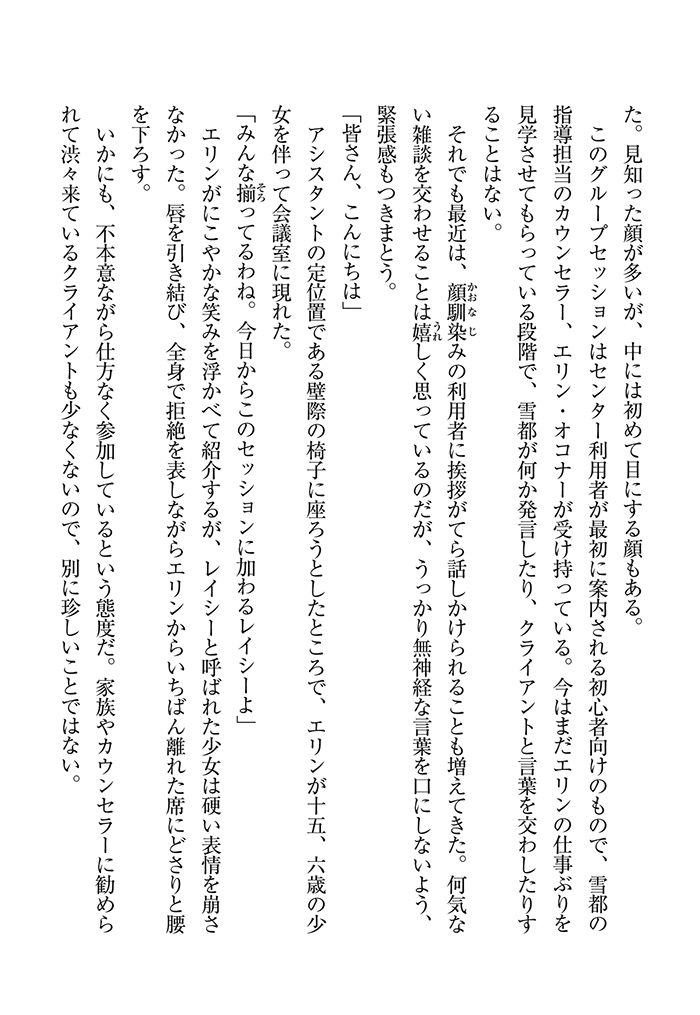 た。見知った顔が多いが、中には初めて目にする顔もある。
　このグループセッションはセンター利用者が最初に案内される初心者向けのもので、雪都の
指導担当のカウンセラー、エリン・オコナーが受け持っている。今はまだエリンの仕事ぶりを
見学させてもらっている段階で、雪都が何か発言したり、クライアントと言葉を交わしたりす
ることはない。
　それでも最近は、顔馴染みの利用者に挨拶がてら話しかけられることも増えてきた。何気な
い雑談を交わせることは嬉しく思っているのだが、うっかり無神経な言葉を口にしないよう、
緊張感もつきまとう。
「皆さん、こんにちは」
　アシスタントの定位置である壁際の椅子に座ろうとしたところで、エリンが十五、六歳の少
女を伴って会議室に現れた。
「みんな揃ってるわね。今日からこのセッションに加わるレイシーよ」
　エリンがにこやかな笑みを浮かべて紹介するが、レイシーと呼ばれた少女は硬い表情を崩さ
なかった。唇を引き結び、全身で拒絶を表しながらエリンからいちばん離れた席にどさりと腰
を下ろす。
　いかにも、不本意ながら仕方なく参加しているという態度だ。家族やカウンセラーに勧めら
れて渋々来ているクライアントも少なくないので、別に珍しいことではない。